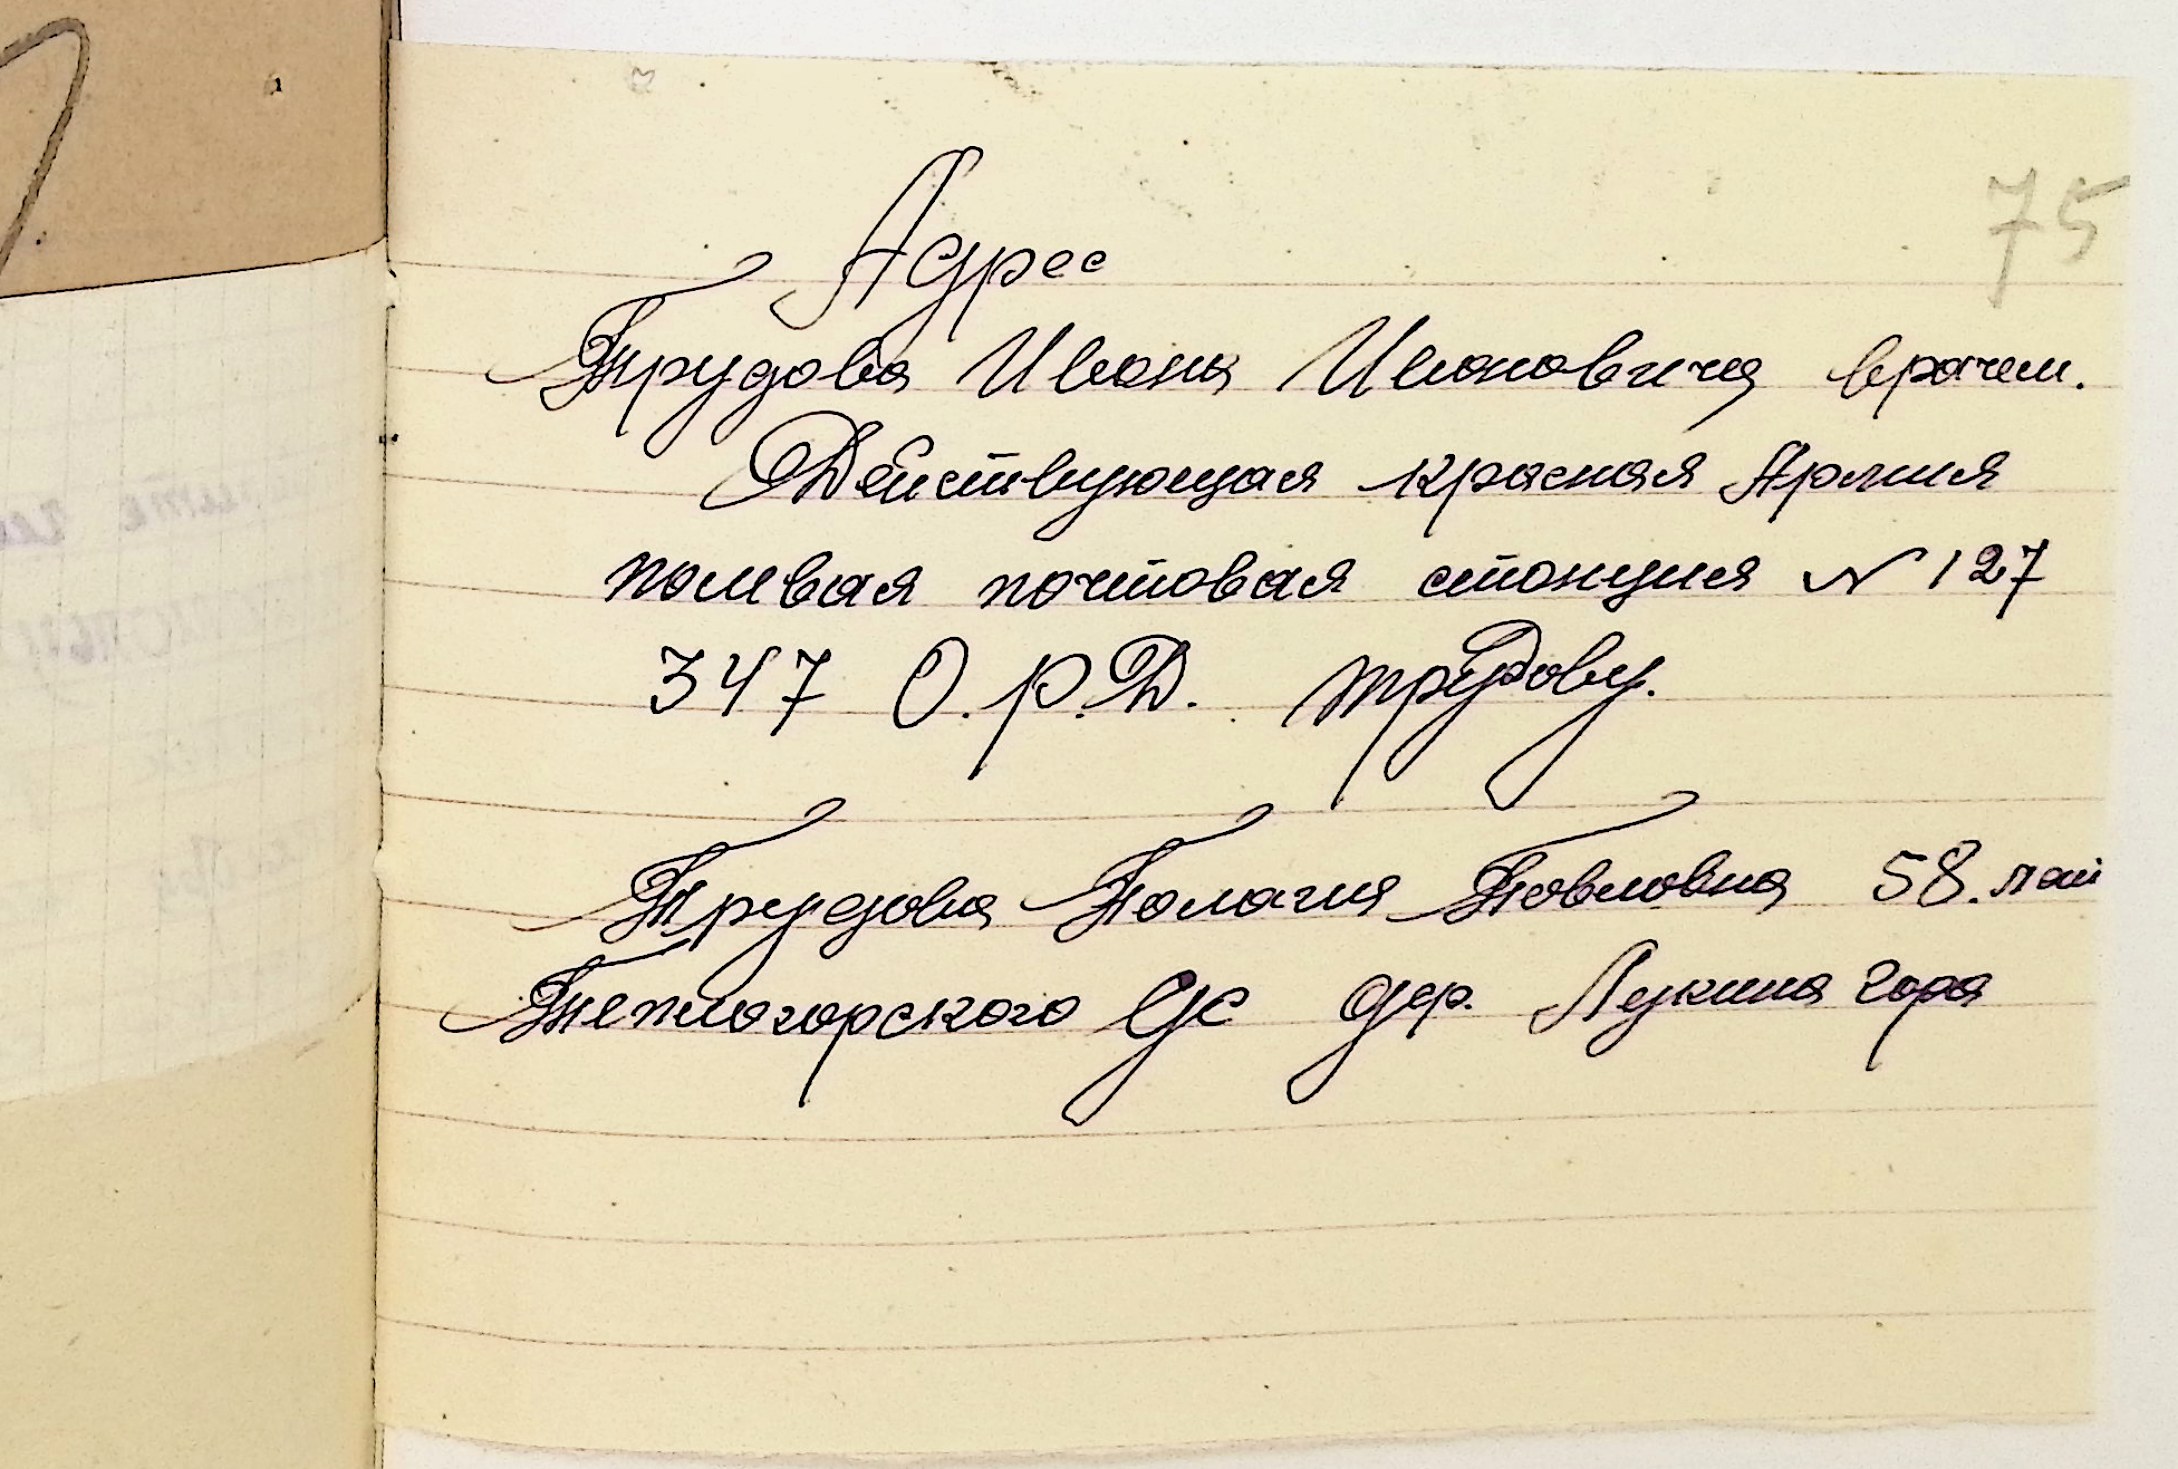 75
Адрес
Трудова Ивана Ивановича врачем.
Действующая красная Армия
полвая почтовая станция N 127
347 О.Р.Д. трудову.
Трудова Полагия Павловна 58. лет
Теплогорского С/С дер. Лукина гора